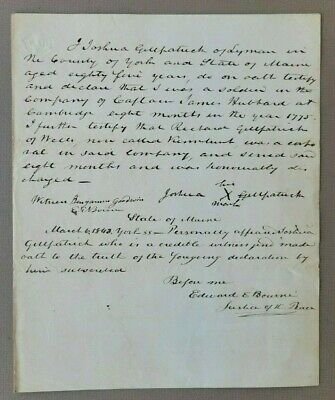 I Joshua Gillpatrick of Lyman in
the County of York and State of Maine
aged eighty five years, do on oath testify
and declare that I was a soldier in the
Company of Captain James Hubbard at
Cambridge eight months in the year 1775.
I further testify that Richard Gillpatrick
of Wells, now called Kennebunk was a corpo
ral in said Company, and served said
eight months and was honourably dis
charged —
Joshua his X mark Gillpatrick
Witness Benjamin Goodwin
E E Bourne
State of Maine
March 6, 1843. York ss — Personally appeared Joshua
Gillpatrick who is a credible witness and made
oath to the truth of the foregoing declaration by
him subscribed
Before me
Edward E Bourne
Justice of the Peace